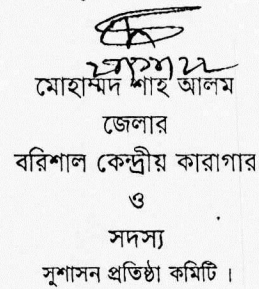 মোহাম্মদ শাহ আলম
জেলার
বরিশাল কেন্দ্রীয় কারাগার
ও
সদস্য
সুশাসন প্রতিষ্ঠা কমিটি ।